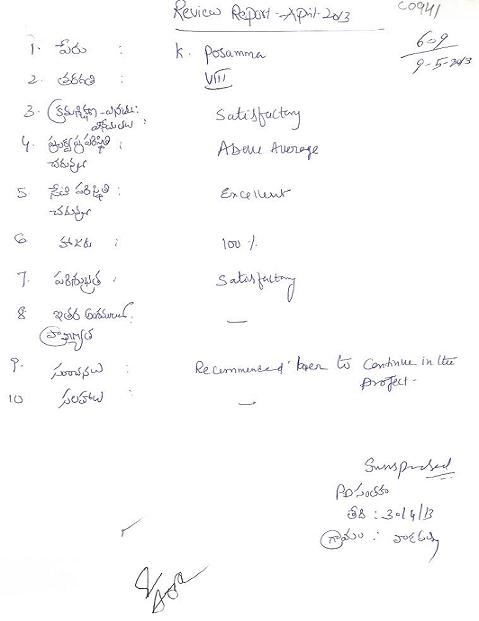 Review Report - April-2013
C0941
609
9-5-2013
1. పేరు : K. Posamma
2. తరగతి : VIII
3. క్రమశిక్షణ - వినయ: Satisfactory
4. : Above Average
చదువు
5. స్థితి : Excellent
చదువు
6 హాజరు : 100 %
7. పరిశుభ్రత : Satisfactory
8. ఇతర —
9. సూచనలు : Recommended to Continue in the
Project.
10 సలహాలు : —
PD సంతకం
తేది : 30/4/13
గ్రామం :